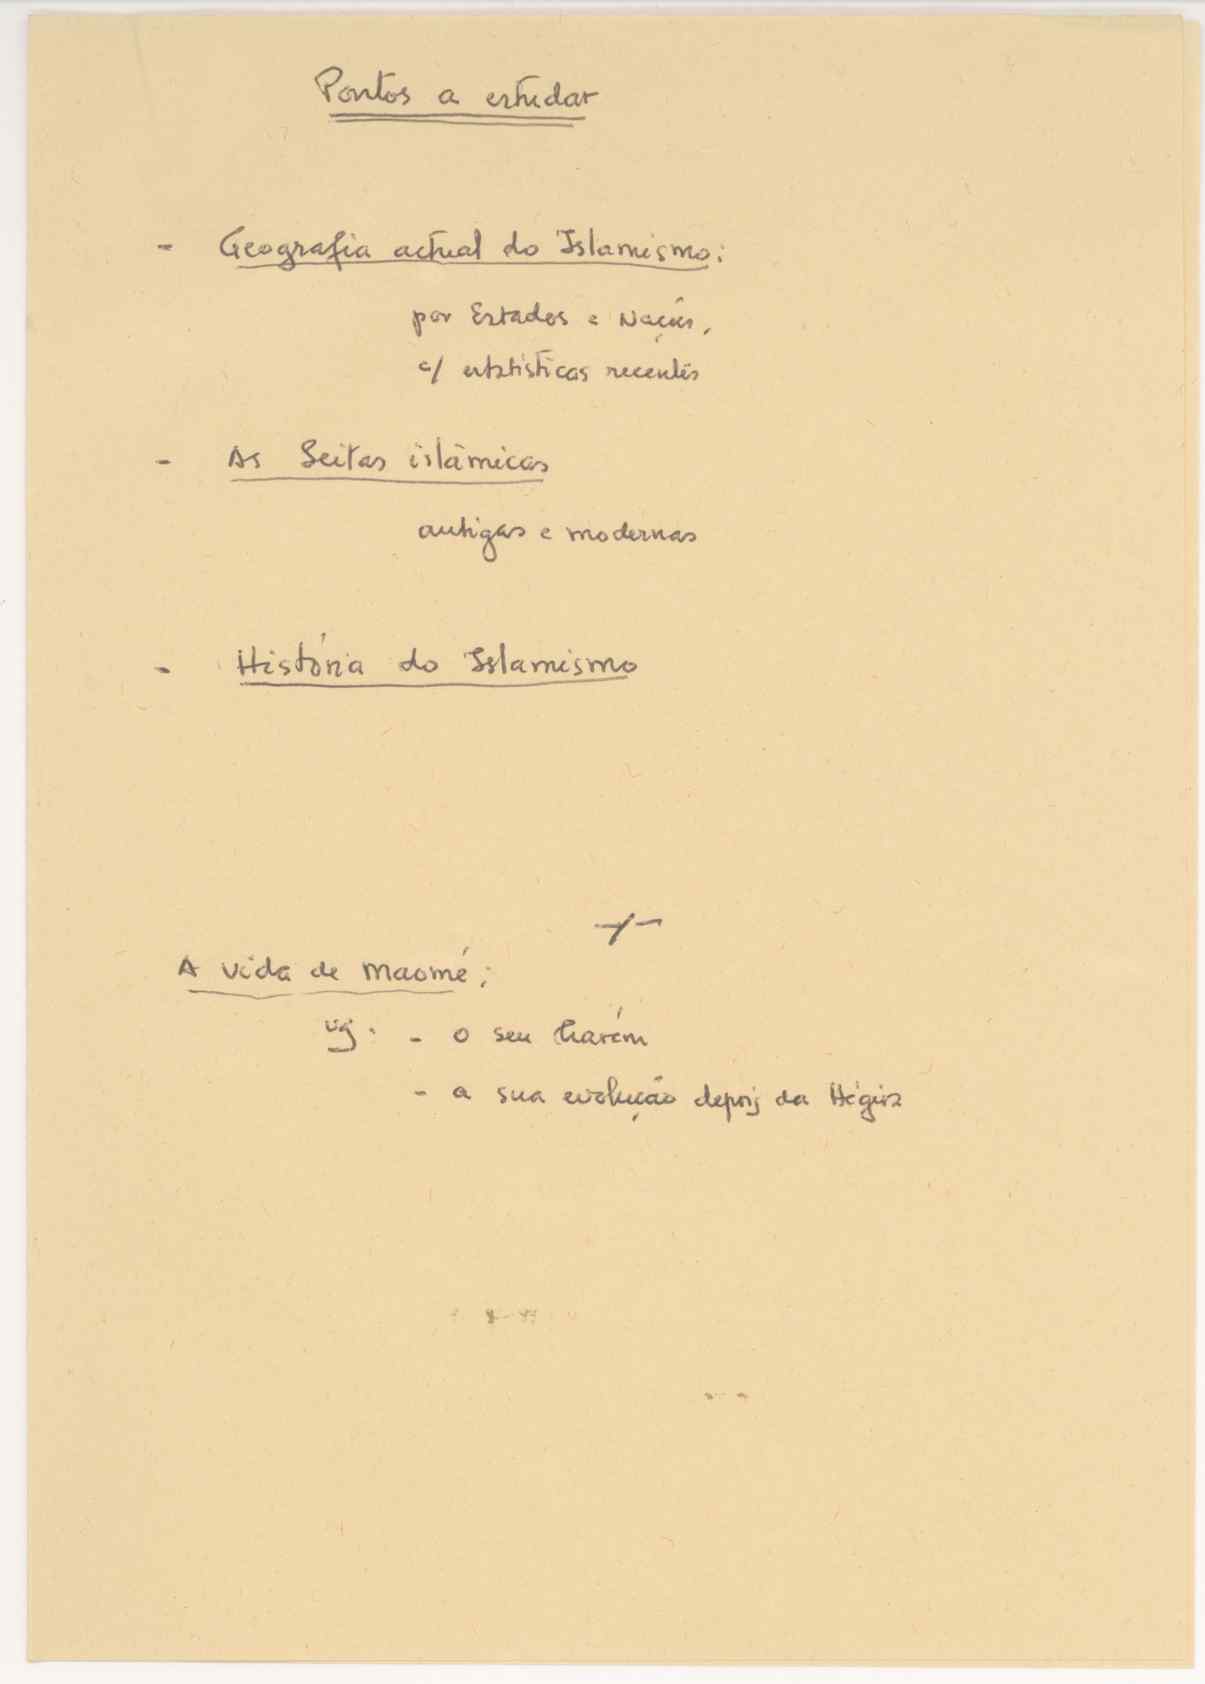 Pontos a estudar
- Geografia actual do Islamismo:
por Estados e Nações,
c/ estatísticas recentes
- As Seitas islâmicas
antigas e modernas
- História do Islamismo
A vida de Maomé;
vg: - o seu harém
- a sua evolução depois da Hégira